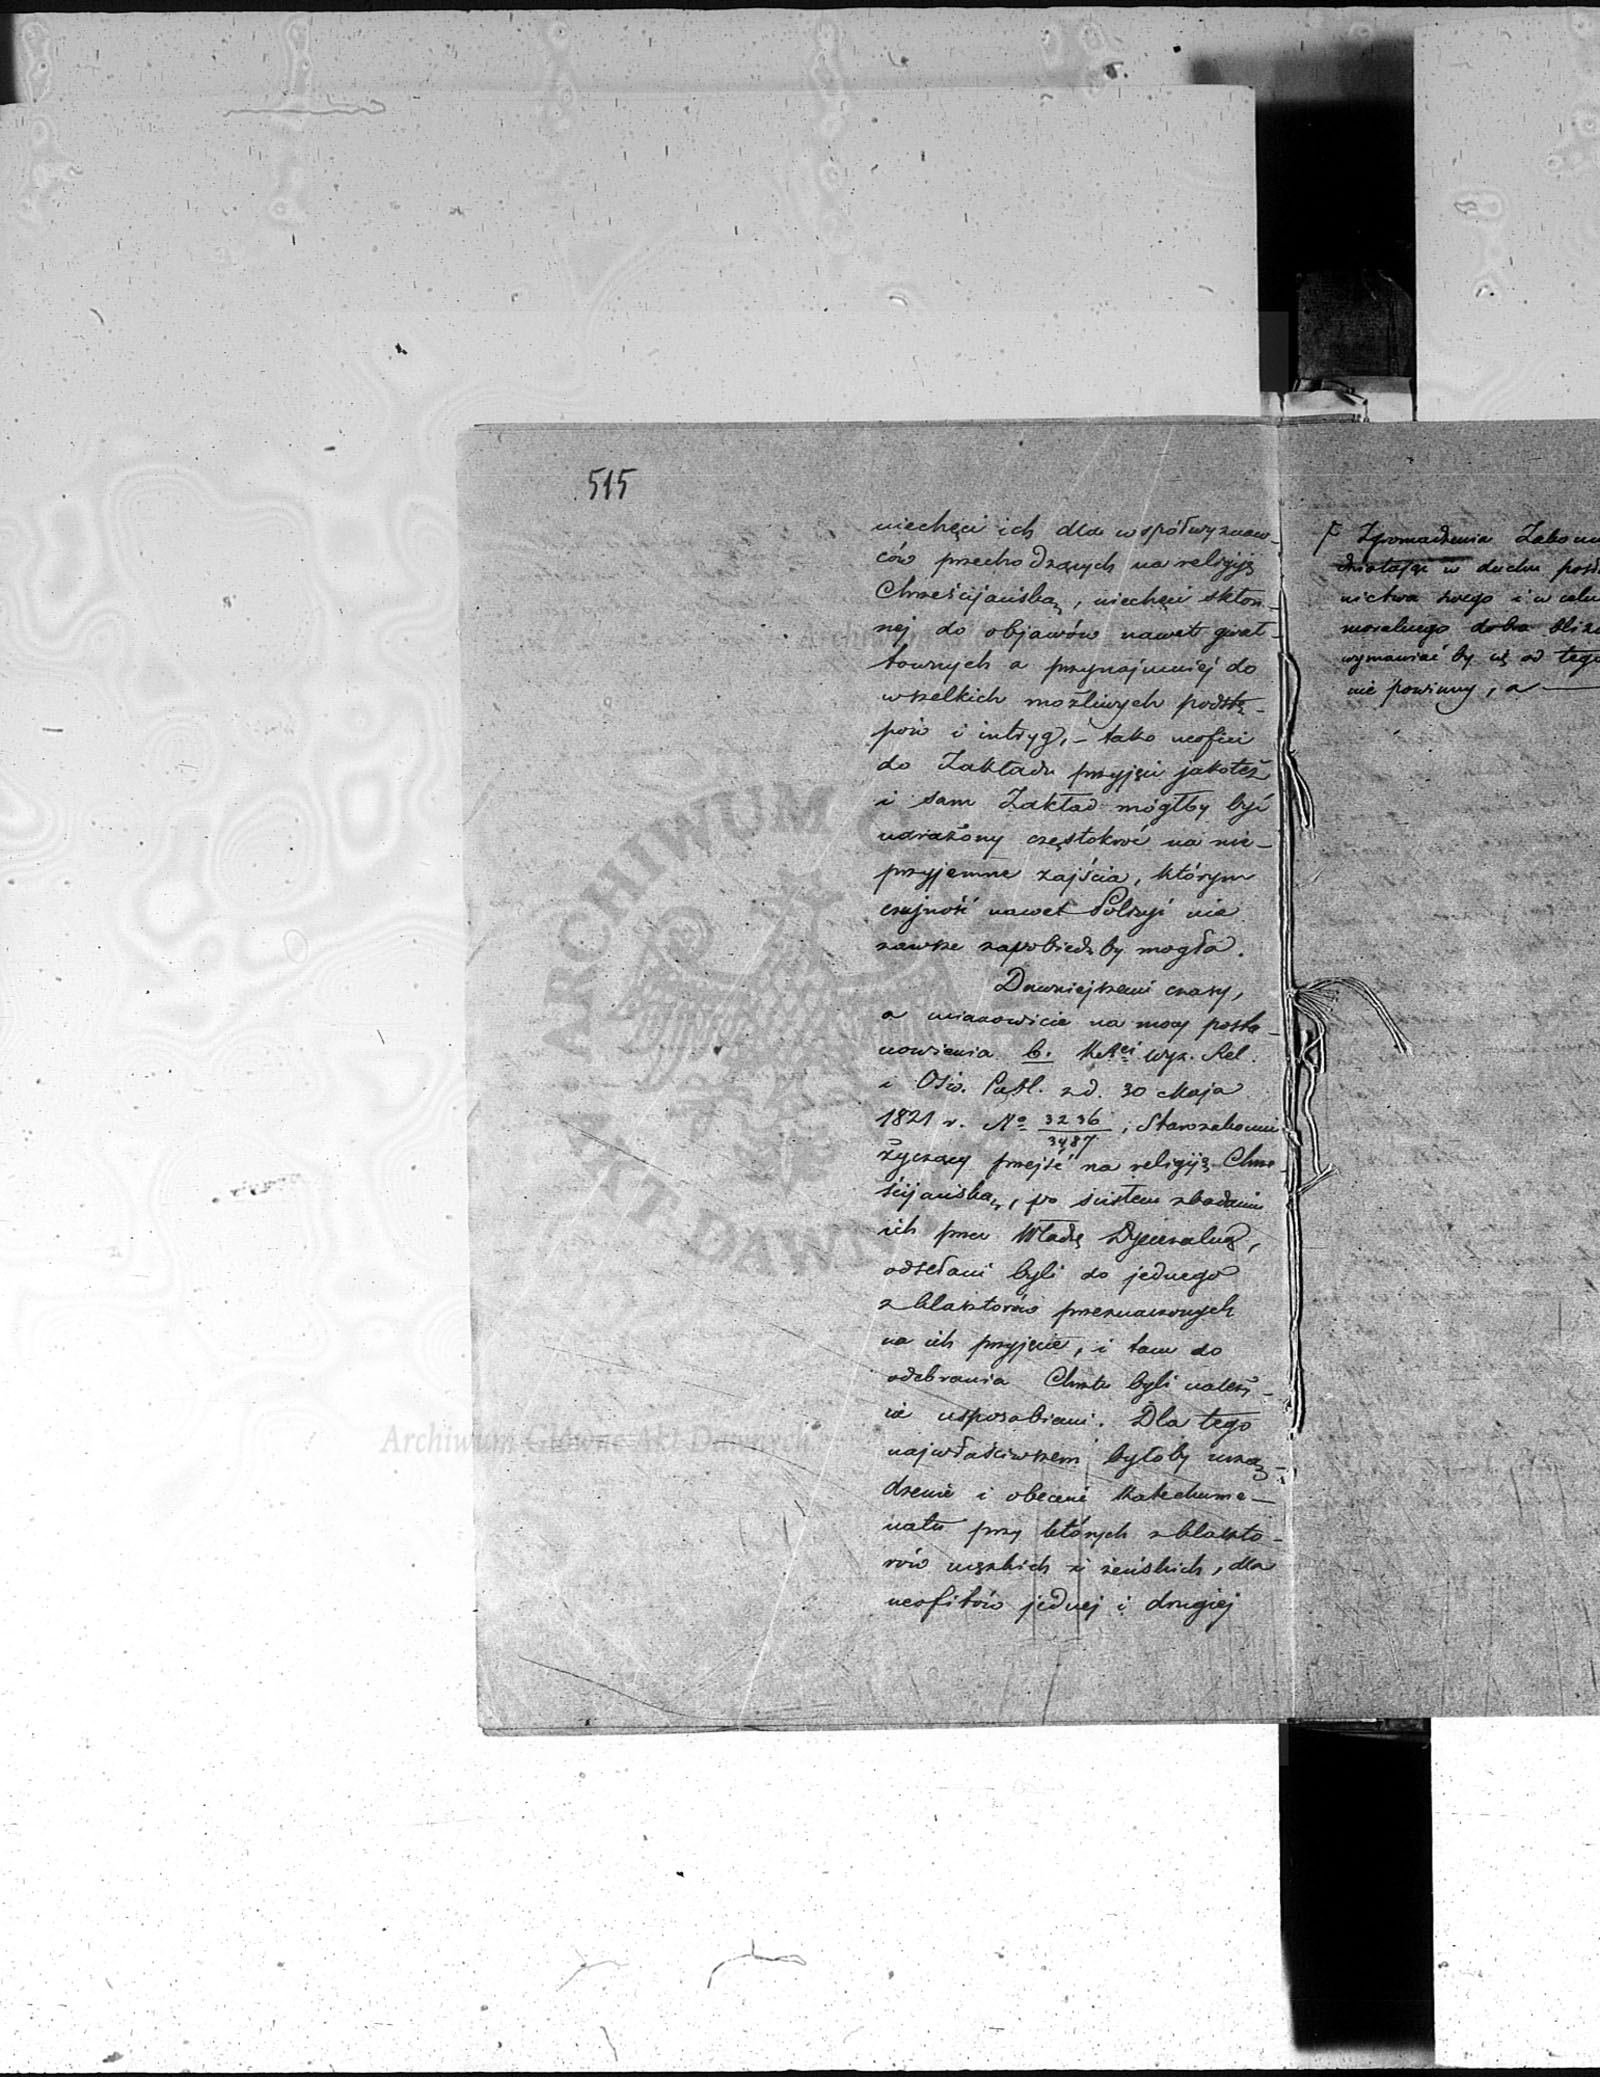 515
niechęci ich dla współwyznaw-
ców przechodzących na religiję
Chrześcijańską, niechęci skłon-
nej do objawów nawet gwał-
townych a przynajmniej do
wszelkich możliwych podstę-
pów i intryg, - tako neofici
do Zakładu przyjęci jakoteż
i sam Zakład mógłby być
narażony częstokroć na nie-
przyjemne zajścia, którym
czujność nawet Policyi nie
zawsze zapobiedz by mogła.
Dawniejszemi czasy,
a mianowicie na mocy posta-
nowienia b. wyz. Rel.
i Ośw. Publ. z d. 30 Maja
1821 r. No 3236/3487, Starozakonni
życzący przejść na religiję Chrze-
ścijańską, po ścisłem zbadaniu
ich przez Władzę Dyecezalną,
odsełani byli do jednego
z klasztorów przeznaczonych
na ich przyjęcie, i tam do
odebrania Chrztu byli należy-
cie usposabiani. Dla tego
najwłaściwszem byłoby urzą-
dzenie i obecnie Katechume-
natu przy których z klaszto-
rów męzkich i żeńskich, dla
neofitów jednej i drugiej
Zgromadzenia Zakonn
działając w duchu posła
nictwa swego i w celu
moralnego dobra bliź
wymawiać by się od tego
nie powinny, a —
ARCHIWUM
AKT DAWN
Archiwum Główne Akt Dawnych